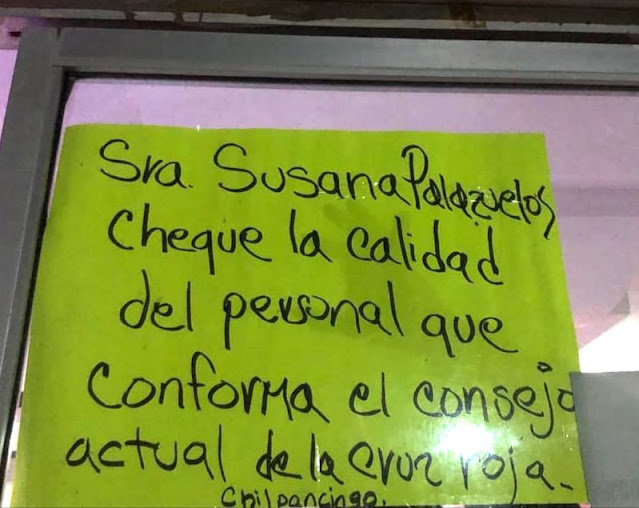 Sra. Susana Palazuelos
Cheque la calidad
del personal que
conforma el consejo
actual de la cruz roja.
Chilpancingo.